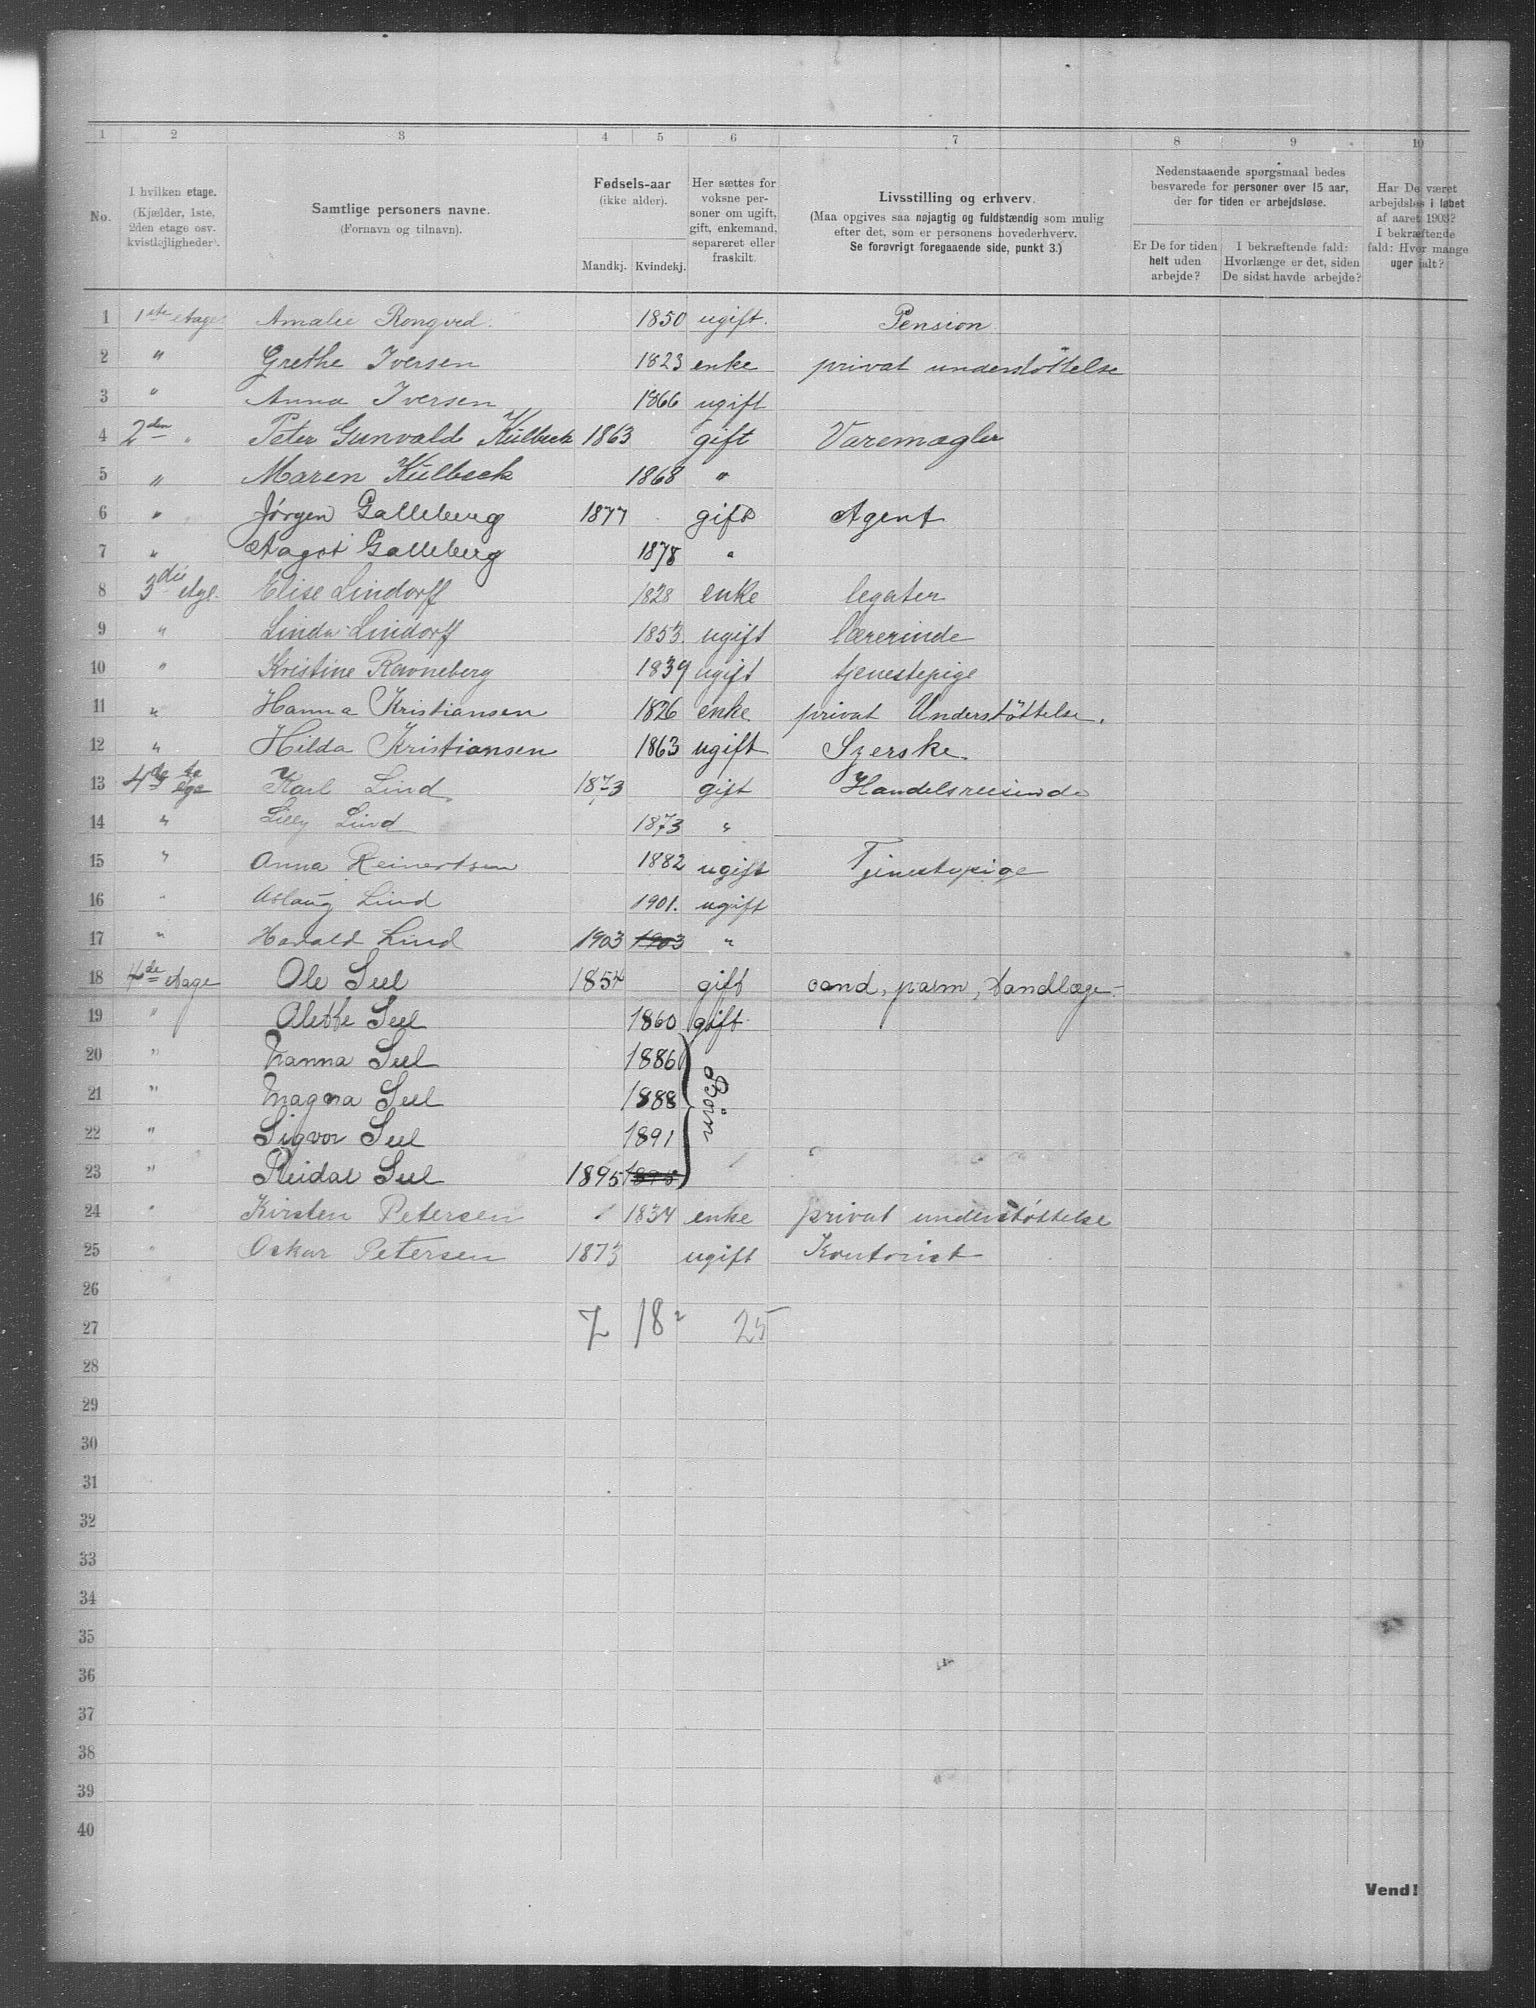 1 2 3 4 5 6 7 8 9 10
No.
I hvilken etage. (Kjælder, 1ste, 2den etage osv. kvistlejligheder).
Samtlige personers navne. (Fornavn og tilnavn).
Fødsels-aar (ikke alder).
Mandkj. Kvindekj.
Her sættes for voksne personer om ugift, gift, enkemand, separeret eller fraskilt.
Livsstilling og erhverv.
(Maa opgives saa nøjagtig og fuldstændig som mulig efter det, som er personens hovederhverv. Se forøvrigt foregaaende side, punkt 3.)
Nedenstaaende spørgsmaal bedes besvarede for personer over 15 aar, der for tiden er arbejdsløse.
Er De for tiden helt uden arbejde?
I bekræftende fald: Hvorlænge er det, siden De sidst havde arbejde?
Har De været arbejdsløs i løbet af aaret 1903? I bekræftende fald: Hvor mange uger ialt?
1 1ste etage Amalie Rongved. 1850 ugift. Pension
2 " Grethe Iversen 1823 enke privat understøttelse
3 " Anna Iversen 1866 ugift
4 2den " Peter Gunvald Külbeck 1863 gift Varemægler
5 " Maren Külbeck 1868 "
6 " Jørgen Galleberg 1877 gift Agent
7 " Aagot Galleberg 1878 "
8 3die etge. Elise Lindorff 1828 enke legater
9 " Linda Lindorff 1853 ugift lærerinde
10 " Kristine Ravneberg 1839 ugift tjenestepige
11 " Hanna Kristiansen 1826 enke privat Understøttelse.
12 " Hilda Kristiansen 1863 ugift Syerske.
13 4de Karl Lind 1873 gift Handelsreisende
14 " Lilly Lind 1873 "
15 " Anna Reinertsen 1882 ugift Tjenestepige
16 " Aslaug Lind 1901. ugift
17 " Harald Lind 1903 1903 "
18 4de etage Ole Seel 1854 gift cand, parm, Tandlæge
19 " Alette Seel 1860 gift
20 " Nanna Seel 1886
21 " Magna Seel 1888 Børn
22 " Sigvor Seel 1891
23 " Reidar Seel 1895 1895
24 " Kirsten Petersen 1834 enke privat understøttelse
25 " Oskar Petersen 1873 ugift Kontorist
26
27 7 18 25
28
29
30
31
32
33
34
35
36
37
38
39
40
Vend!